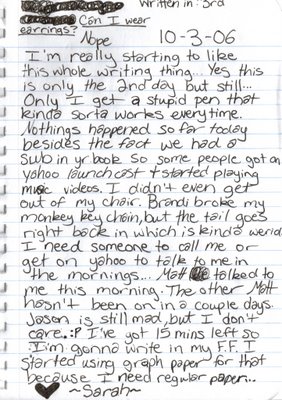 Written in: 3rd
Can I wear
earrings?
Nope 10-3-06
I'm really starting to like
this whole writing thing... Yes this
is only the 2nd day but still...
Only I get a stupid pen that
kinda sorta works everytime.
Nothings happened so far today
besides the fact we had a
sub in yr book so some people got on
yahoo launchcast + started playing
music videos. I didn't even get
out of my chair. Brandi broke my
monkey keychain, but the tail goes
right back in which is kinda werid.
I need someone to call me or
get on yahoo to talk to me in
the mornings... Matt talked to
me this morning. The other Matt
hasn't been on in a couple days.
Jason is still mad, but I don't
care. :P I've got 15 mins left so
I'm gonna write in my F.F. I
started using graph paper for that
because I need regular paper...
♥ ~Sarah~